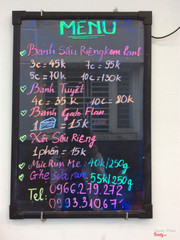 MENU
Bánh Sầu Riêng kem lạnh
3c = 45k 7c = 95k
5c = 70k 10c = 130k
Bánh Tuyết
4c = 35k 10c = 80k
Bánh Gato Flan
1 = 15k
Xôi Sầu Riêng
1 phần = 15k
Mứt Rim Me: 40k/250g
Ghẹ sữa rim: 55k/250g
Tel: 0966.279.272
0933.310.671